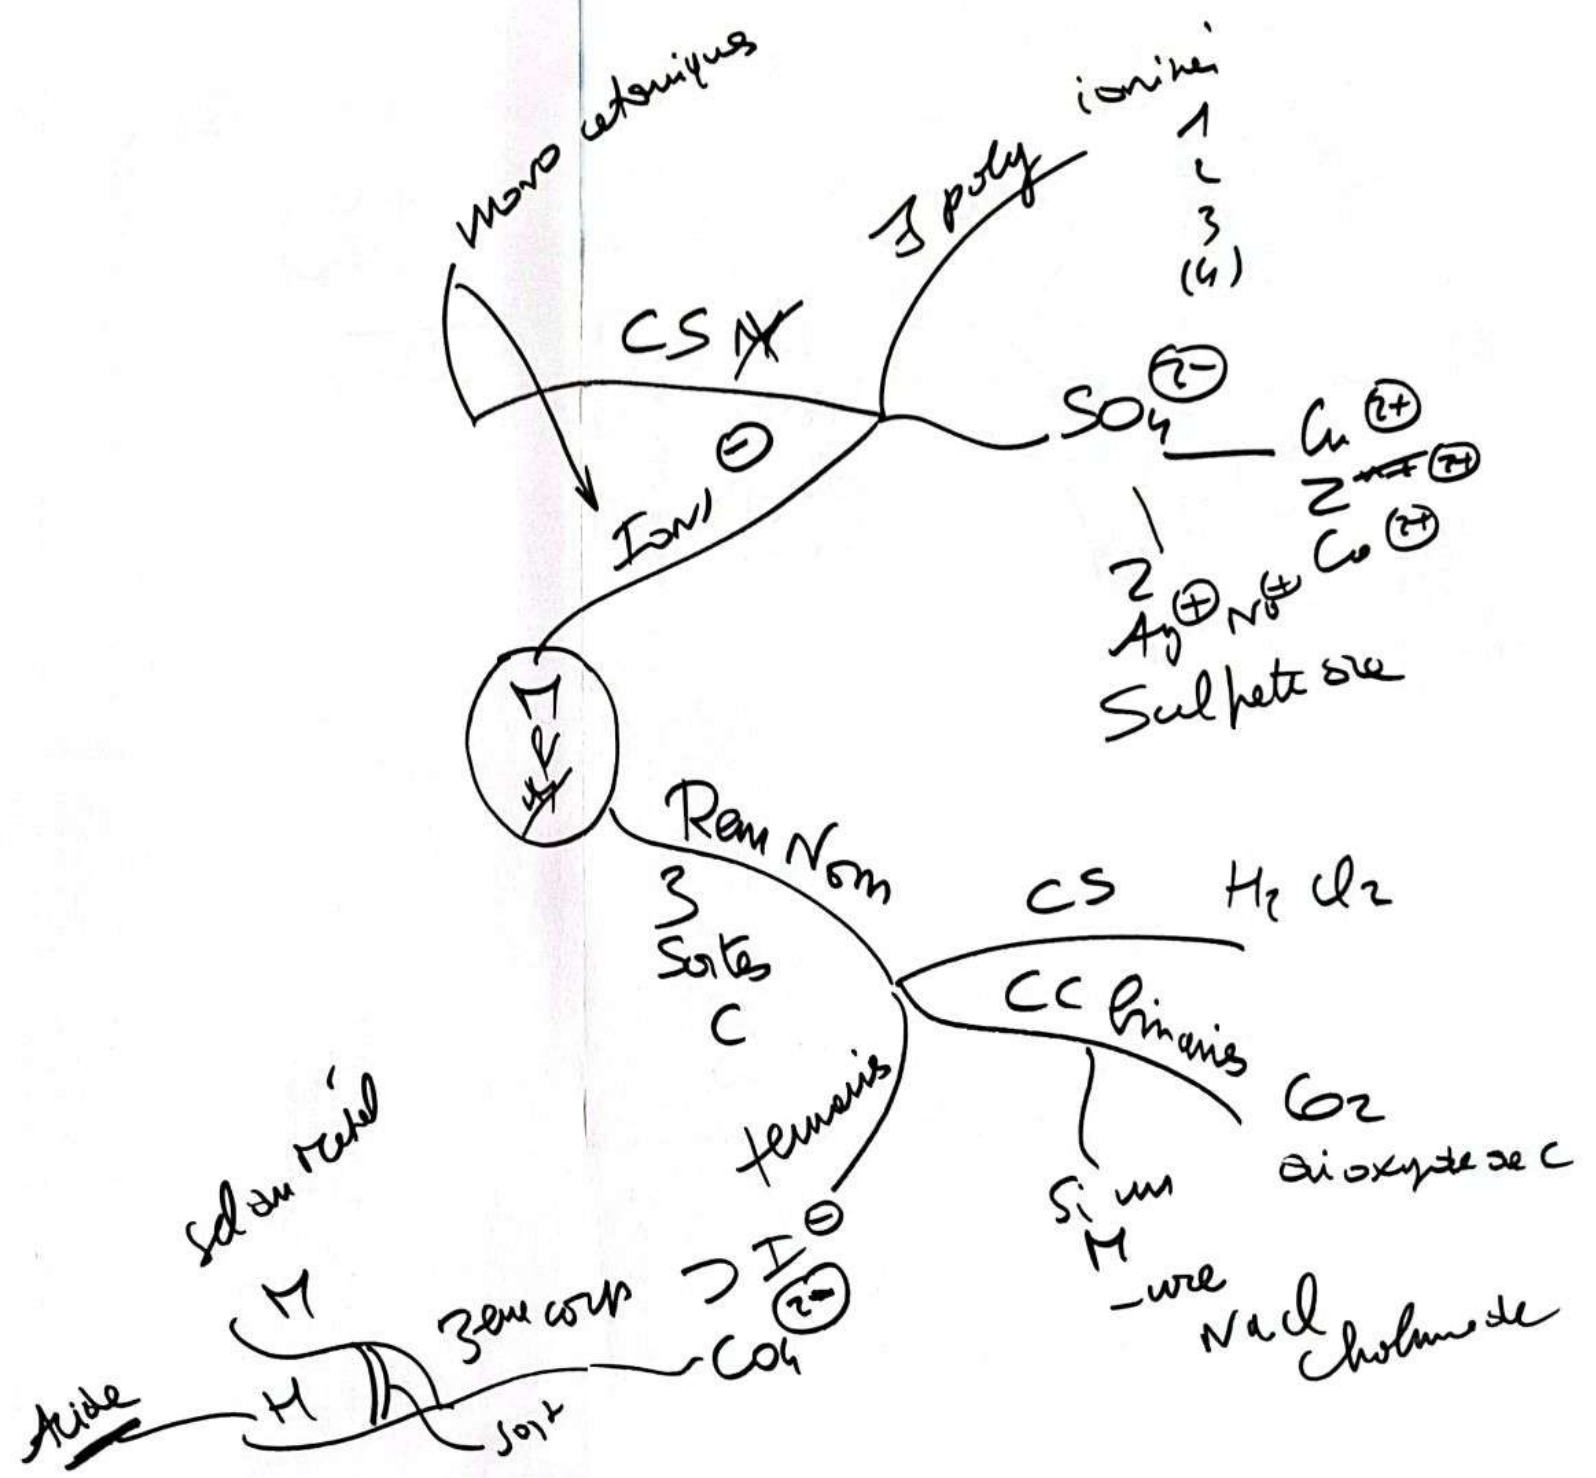 Mono atomiques
CS
Ions
⊖
∃ poly
ionisés
1
2
3
(4)
SO₄ 2-
Cu 2+
Z 2+
Co 2+
2
Ag + Na +
Sulfate de
M
Rem Nom
3
Sortes
C
CS H₂ Cl₂
CC binaires
CO₂
dioxyde de C
Si un
M
-ure
NaCl
ternaires
⊃ I ⊖
2-
CO₄
3eme corps
sel ou métal
M
H
Acide